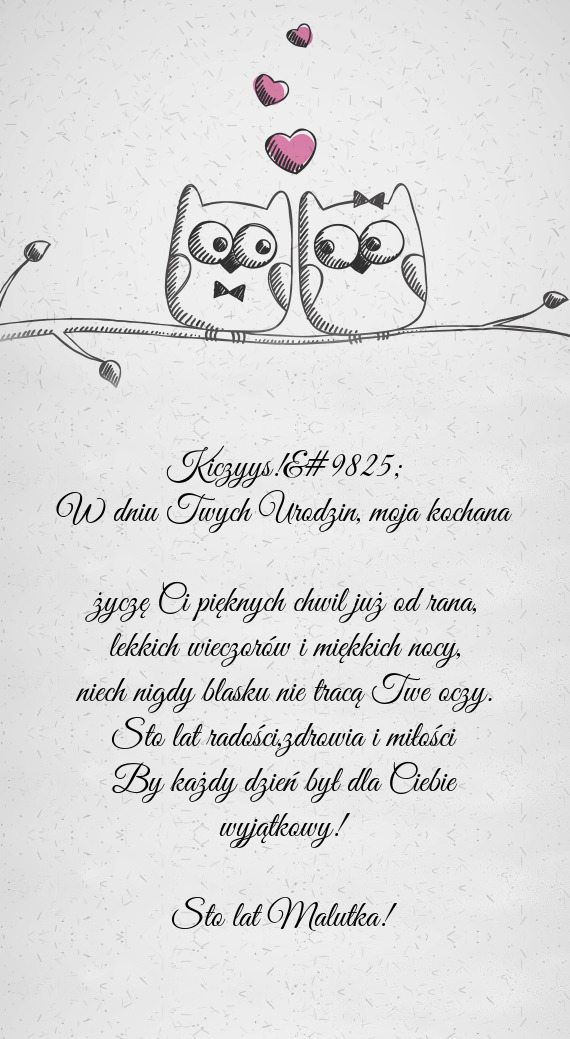 Kiczyys!&#9825;
W dniu Twych Urodzin, moja kochana
życzę Ci pięknych chwil już od rana,
lekkich wieczorów i miękkich nocy,
niech nigdy blasku nie tracą Twe oczy.
Sto lat radości,zdrowia i miłości
By każdy dzień był dla Ciebie
wyjątkowy!
Sto lat Malutka!